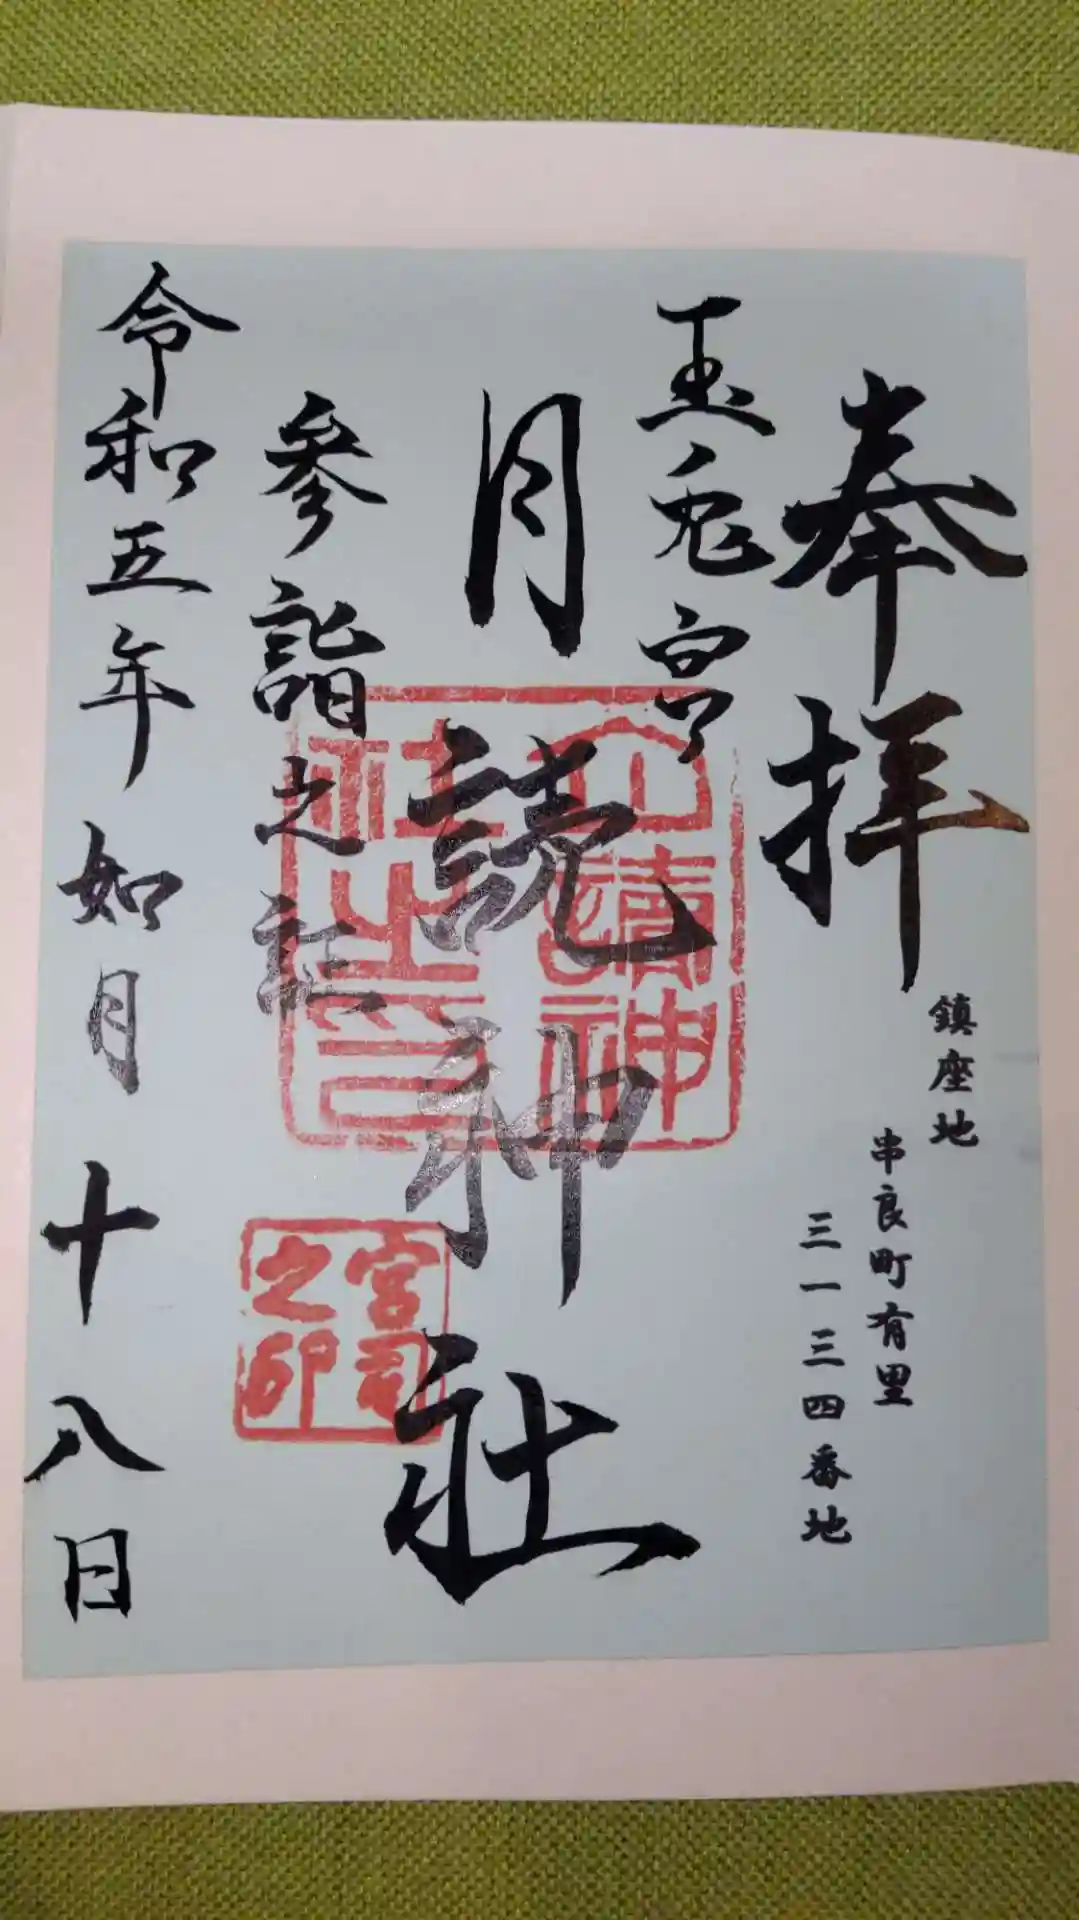 奉拝
鎮座地
串良町有里
三一三四番地
玉兎宮
月読神社
月讀神
社之印
宮司
之印
参詣之証
令和五年如月十八日